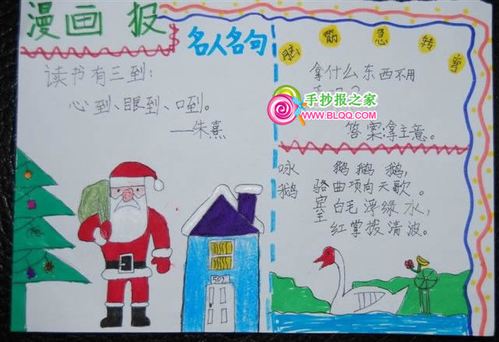 漫画 报
名人名句
读书有三到:
心到、眼到、口到。
—朱熹
脑筋急转弯
拿什么东西不用
手抄报之家
WWW.BLQQ.COM
答案拿主意。
咏鹅
骆宾王
鹅鹅鹅,
曲项向天歌。
白毛浮绿水,
红掌拨清波。